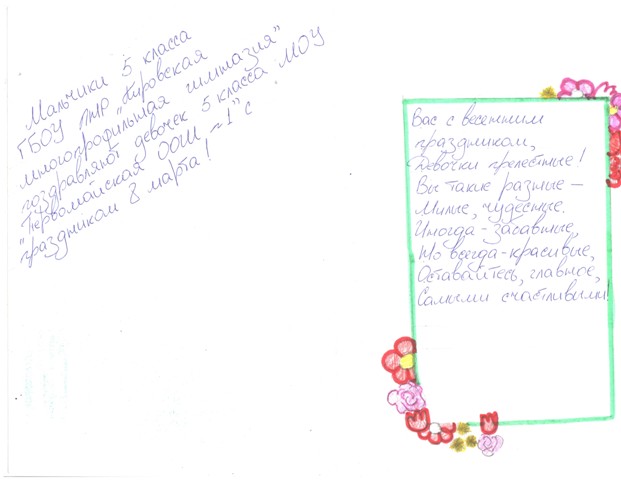 Мальчики 5 класса
ГБОУ ЛНР "Кировская
многопрофильная гимназия"
поздравляют девочек 5 класса МОУ
"Первомайская ООШ №1" с
праздником 8 марта!
Вас с весенним
праздником,
Девочки прелестные!
Вы такие разные –
Милые, чудесные.
Иногда - забавные,
Но всегда - красивые,
Оставайтесь, главное,
Самыми счастливыми!